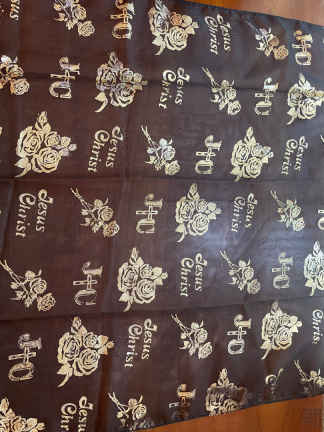 J†C
Jesus
Christ
J†C
Jesus
Christ
J†C
J†C
Jesus
Christ
J†C
Jesus
Christ
Jesus
Christ
J†C
Jesus
Christ
J†C
Jesus
Christ
J†C
Jesus
Christ
J†C
Christ
J†C
Jesus
Christ